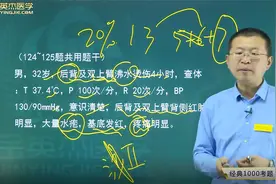 英杰医学
YINGJIE.COM
20% 13
(124~125题共用题干)
男，32岁，后背及双上臂沸水烫伤4小时，查体
：T 37.4℃，P 100次/分，R 20次/分，BP
130/90mmHg，意识清楚，后背及双上臂背侧红肿
明显，大量水疱，基底发红，疼痛明显。
II
经典1000考题